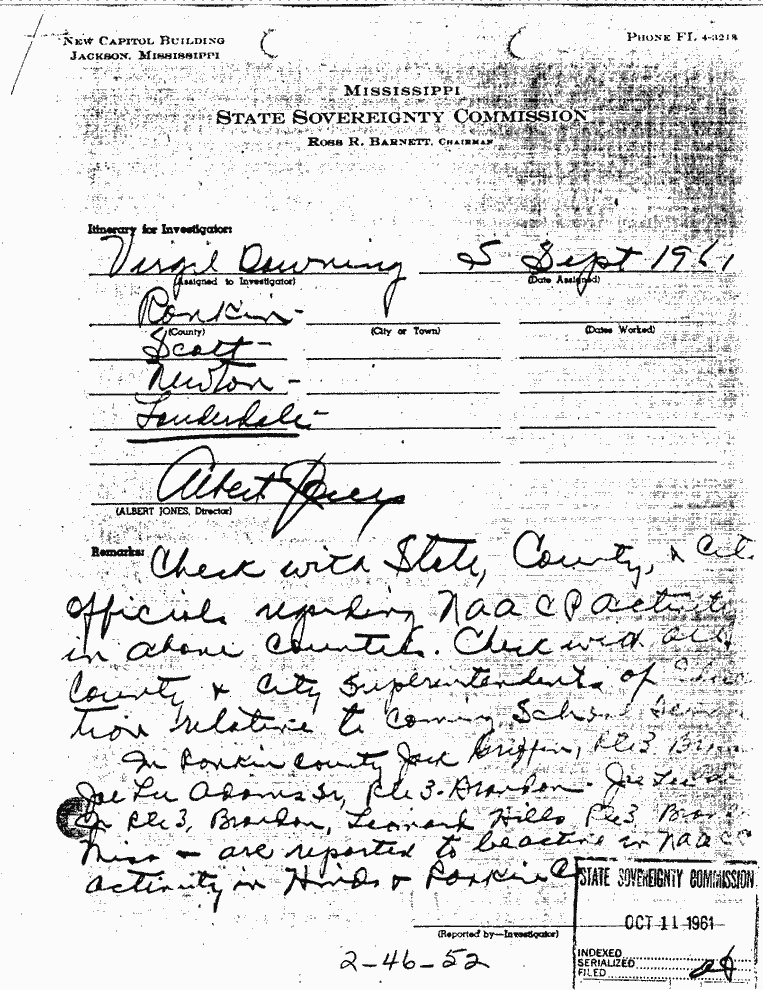 NEW CAPITOL BUILDING
JACKSON, MISSISSIPPI
PHONE FL 4-3218
MISSISSIPPI
STATE SOVEREIGNTY COMMISSION
ROSS R. BARNETT, CHAIRMAN
Itinerary for Investigator:
Virgil Downing 5 Sept 1961
(Assigned to Investigator) (Date Assigned)
Rankin -
(County) (City or Town) (Dates Worked)
Scott -
Newton -
Lauderdale -
Albert Jones
(ALBERT JONES, Director)
Remarks: Check with State, County, &
Officials regarding NAACP
in above Counties. Check with
County & City Superintendents of
tion relative to coming School
In Rankin County Jack Griffin, Rte 3
Joe Lee Adams Sr, Rte 3 - Brandon - Joe
Jr Rte 3, Brandon, Leonard Hills Rte 3
Miss - are reported to be active in NAACP
activity in Hinds & Rankin
STATE SOVEREIGNTY COMMISSION
OCT 11 1961
(Reported by—Investigator)
INDEXED
SERIALIZED
FILED
2-46-52